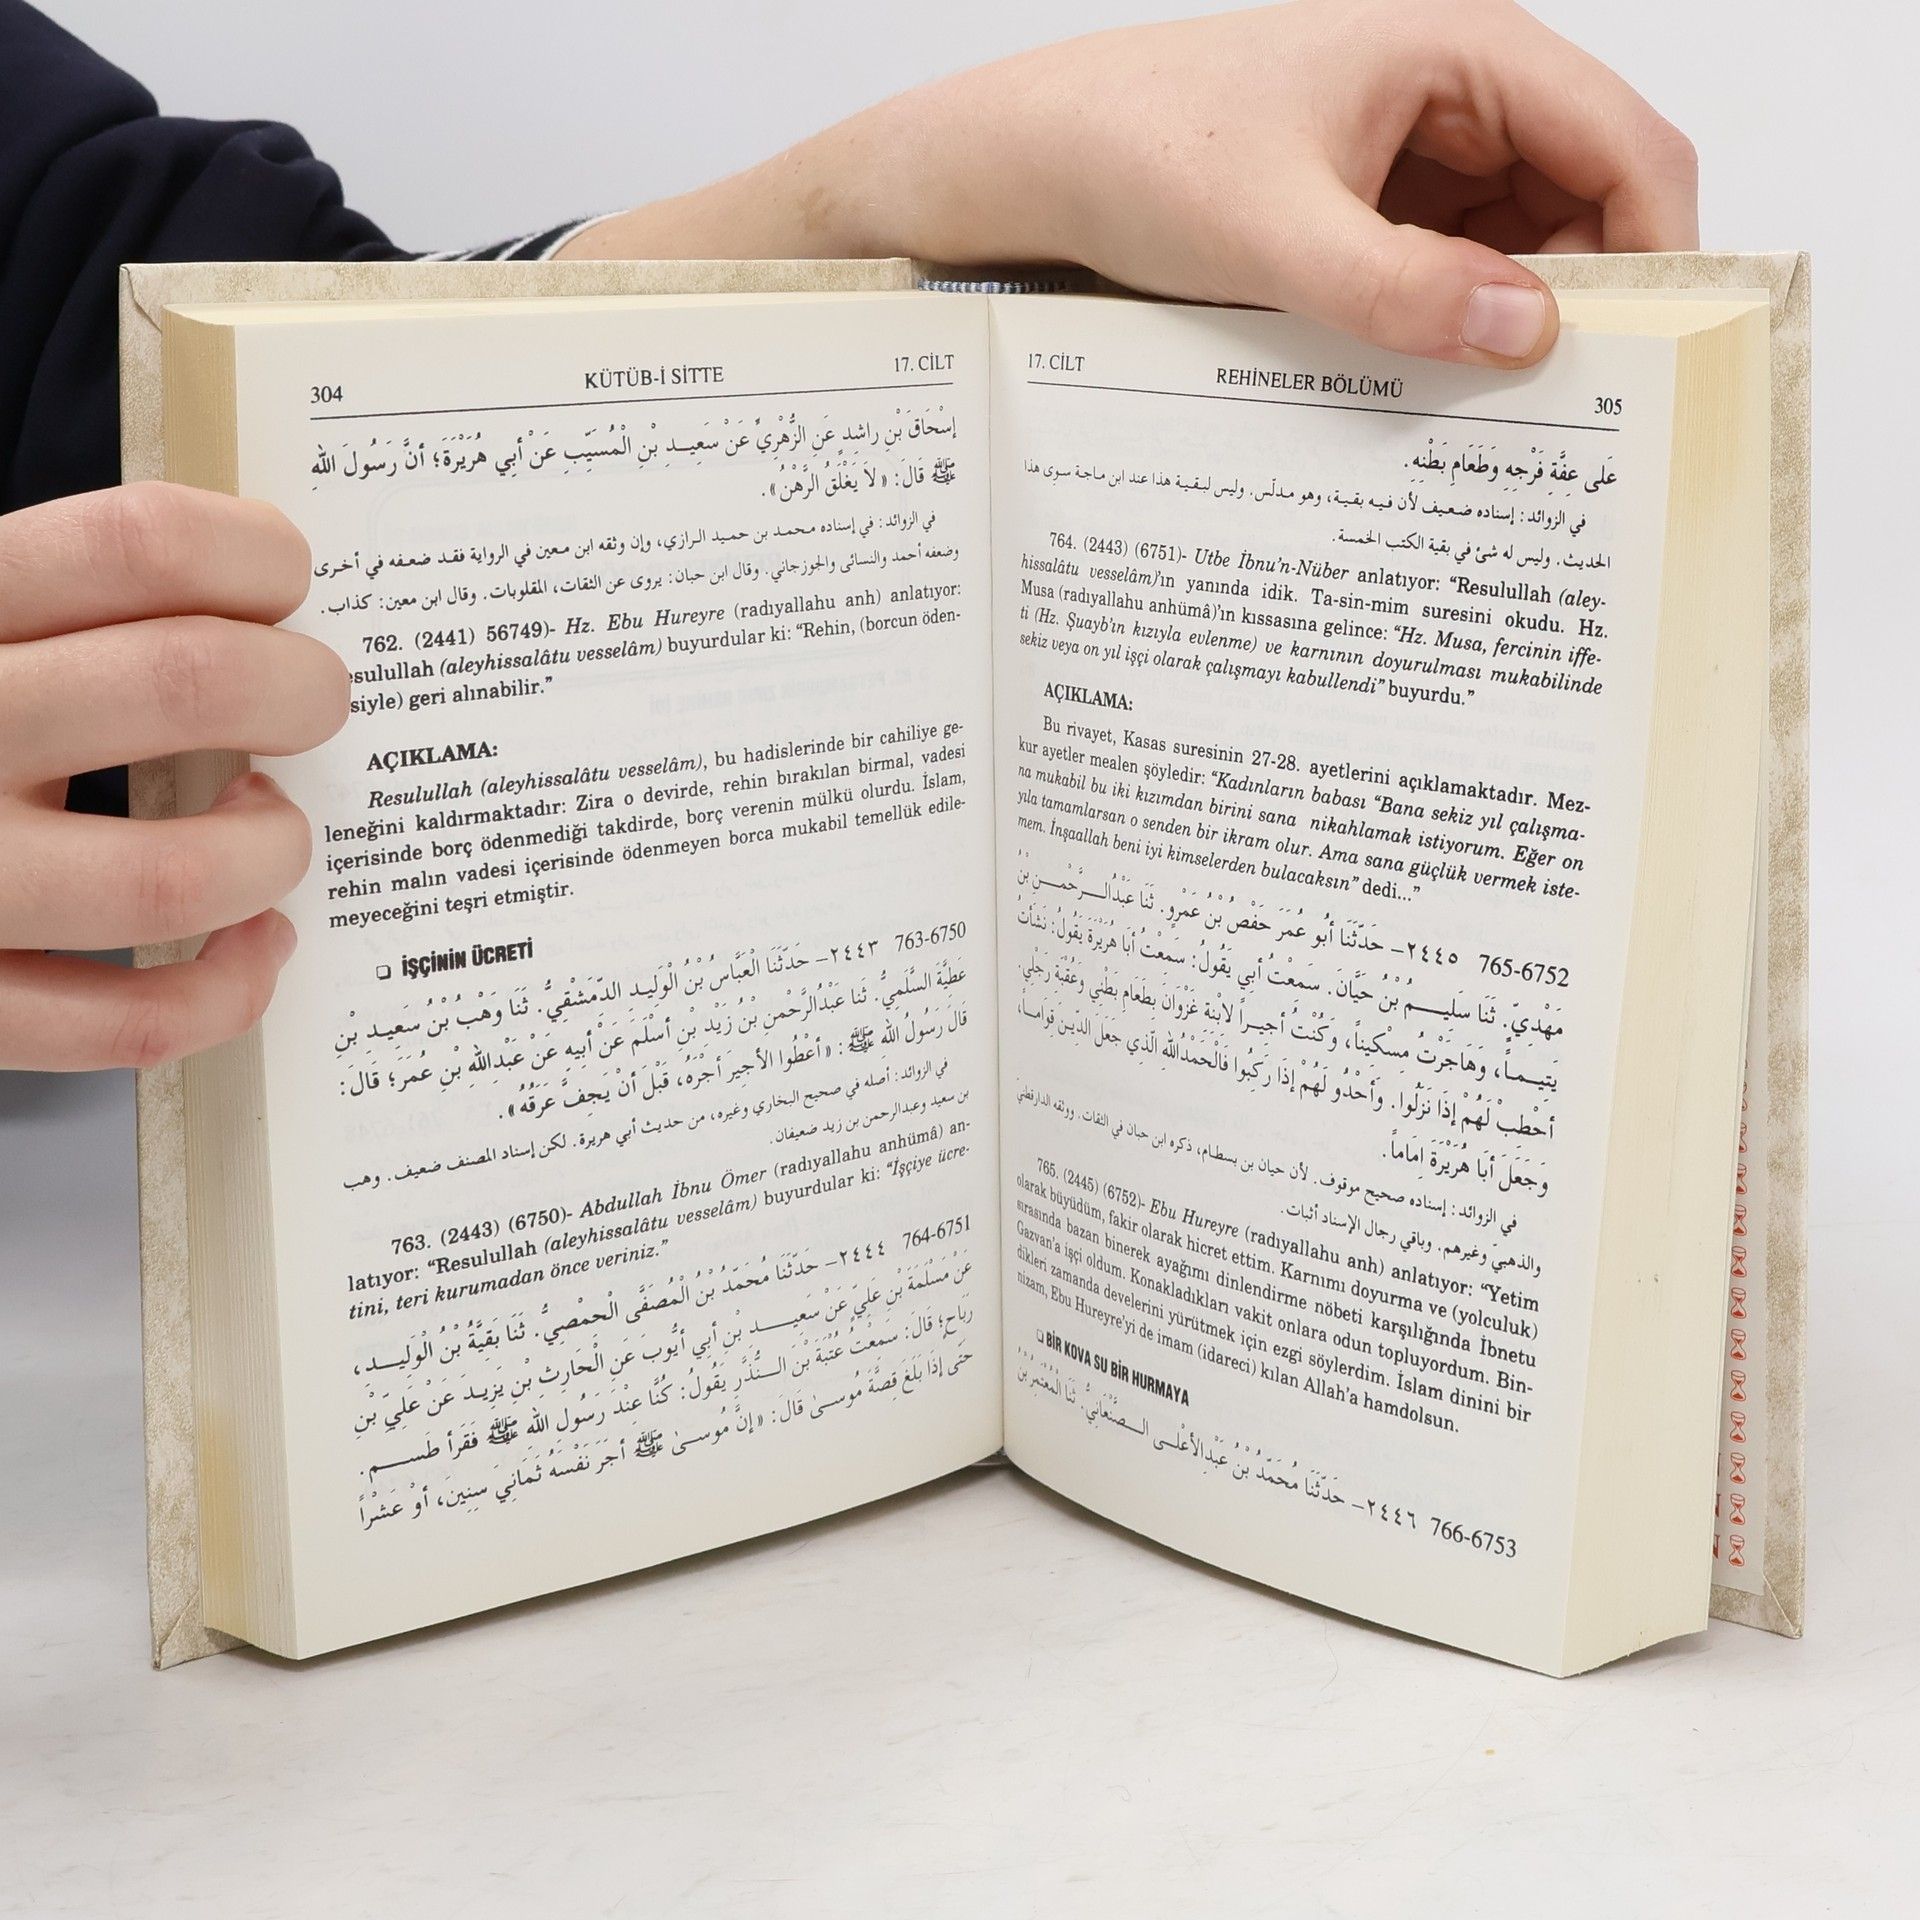 304 KÜTÜB-İ SİTTE 17. CİLT
إِسْحَاقَ بْنِ راشِدٍ عَنِ الزُّهْرِيِّ عَنْ سَعِيدِ بْنِ الْمُسَيِّبِ عَنْ أَبِي هُرَيْرَةَ؛ أَنَّ رَسُولَ اللهِ
ﷺ قَالَ: «لاَ يَغْلَقُ الرَّهْنُ».
في الزوائد: في إسناده محمد بن حميد الرازي، وإن وثقه ابن معين في الرواية فقد ضعفه في أخرى
وضعفه أحمد والنسائى والجوزجاني. وقال ابن حبان: يروى عن الثقات، المقلوبات. وقال ابن معين: كذاب.
762. (2441) 56749)- Hz. Ebu Hureyre (radıyallahu anh) anlatıyor:
esulullah (aleyhissalâtu vesselâm) buyurdular ki: “Rehin, (borcun öden-
siyle) geri alınabilir.”
AÇIKLAMA:
Resulullah (aleyhissalâtu vesselâm), bu hadislerinde bir cahiliye ge-
leneğini kaldırmaktadır: Zira o devirde, rehin bırakılan birmal, vadesi
içerisinde borç ödenmediği takdirde, borç verenin mülkü olurdu. İslam,
rehin malın vadesi içerisinde ödenmeyen borca mukabil temellük edile-
meyeceğini teşri etmiştir.
❏ İŞÇİNİN ÜCRETİ
763-6750 ٢٤٤٣– حَدَّثَنَا الْعَبَّاسُ بْنُ الْوَلِيدِ الدِّمَشْقِيُّ. ثَنَا وَهْبُ بْنُ سَعِيدِ بْنِ
عَطِيَّةَ السَّلَمِيُّ. ثنا عَبْدُالرَّحْمنِ بْنُ زَيْدِ بْنِ أَسْلَمَ عَنْ أَبِيهِ عَنْ عَبْدِاللهِ بْنِ عُمَرَ؛ قَالَ:
قَالَ رَسُولُ اللهِ ﷺ: «أَعْطُوا الأَجِيرَ أَجْرَهُ، قَبْلَ أَنْ يَجِفَّ عَرَقُهُ».
في الزوائد: أصله في صحيح البخاري وغيره، من حديث أبي هريرة. لكن إسناد المصنف ضعيف. وهب
بن سعيد وعبدالرحمن بن زيد ضعيفان.
763. (2443) (6750)- Abdullah İbnu Ömer (radıyallahu anhümâ) an-
latıyor: “Resulullah (aleyhissalâtu vesselâm) buyurdular ki: “İşçiye ücre-
tini, teri kurumadan önce veriniz.”
764-6751 ٢٤٤٤– حَدَّثَنَا مُحَمَّدُ بْنُ الْمُصَفَّى الْحِمْصِيُّ. ثَنَا بَقِيَّةُ بْنُ الْوَلِيدِ،
عَنْ مَسْلَمَةَ بْنِ عَلِيٍّ عَنْ سَعِيدِ بْنِ أَبِي أَيُّوبَ عَنِ الْحَارِثِ بْنِ يَزِيدَ عَنْ عَلِيِّ بْنِ
رَبَاحٍ؛ قَالَ: سَمِعْتُ عُتْبَةَ بْنَ النُّذَّرِ يَقُولُ: كُنَّا عِنْدَ رَسُولِ اللهِ ﷺ فَقَرَأَ طَسم.
حَتَّى إِذَا بَلَغَ قِصَّةَ مُوسىٰ قَالَ: «إِنَّ مُوسىٰ ﷺ أَجَرَ نَفْسَهُ ثَمَانِيَ سِنِينَ، أَوْ عَشْراً
17. CİLT REHİNELER BÖLÜMÜ 305
عَلى عِفَّةِ فَرْجِهِ وَطَعَامِ بَطْنِهِ.
في الزوائد: إسناده ضعيف لأن فيه بقية، وهو مدلّس. وليس لبقية هذا عند ابن ماجة سوى هذا
الحديث. وليس له شئ في بقية الكتب الخمسة.
764. (2443) (6751)- Utbe İbnu’n-Nüber anlatıyor: “Resulullah (aley-
hissalâtu vesselâm)’ın yanında idik. Ta-sin-mim suresini okudu. Hz.
Musa (radıyallahu anhümâ)’ın kıssasına gelince: “Hz. Musa, fercinin iffe-
ti (Hz. Şuayb’ın kızıyla evlenme) ve karnının doyurulması mukabilinde
sekiz veya on yıl işçi olarak çalışmayı kabullendi” buyurdu.”
AÇIKLAMA:
Bu rivayet, Kasas suresinin 27-28. ayetlerini açıklamaktadır. Mez-
kur ayetler mealen şöyledir: “Kadınların babası “Bana sekiz yıl çalışma-
na mukabil bu iki kızımdan birini sana nikahlamak istiyorum. Eğer on
yıla tamamlarsan o senden bir ikram olur. Ama sana güçlük vermek iste-
mem. İnşaallah beni iyi kimselerden bulacaksın” dedi...”
765-6752 ٢٤٤٥– حَدَّثَنَا أَبُو عُمَرَ حَفْصُ بْنُ عَمْرٍو. ثَنَا عَبْدُالرَّحْمنِ بْنُ
مَهْدِيٍّ. ثَنَا سَلِيمُ بْنُ حَيَّانَ. سَمِعْتُ أَبِي يَقُولُ: سَمِعْتُ أَبَا هُرَيْرَةَ يَقُولُ: نَشَأْتُ
يَتِيماً، وَهَاجَرْتُ مِسْكِيناً، وَكُنْتُ أَجِيراً لابْنَةِ غَزْوَانَ بِطَعَامِ بَطْنِي وَعُقْبَةِ رَجْلِي.
أَحْطِبُ لَهُمْ إِذَا نَزَلُوا. وَأَحْدُو لَهُمْ إِذَا رَكِبُوا فَالْحَمْدُ للهِ الَّذِي جَعَلَ الدِّينَ قِوَاماً،
وَجَعَلَ أَبَا هُرَيْرَةَ اِمَاماً.
في الزوائد: إسناده صحيح موقوف. لأن حيان بن بسطام، ذكره ابن حبان في الثقات. ووثقه الدارقطنيّ
والذهبيّ وغيرهم. وباقي رجال الإسناد أثبات.
765. (2445) (6752)- Ebu Hureyre (radıyallahu anh) anlatıyor: “Yetim
olarak büyüdüm, fakir olarak hicret ettim. Karnımı doyurma ve (yolculuk)
sırasında bazan binerek ayağımı dinlendirme nöbeti karşılığında İbnetu
Gazvan’a işçi oldum. Konakladıkları vakit onlara odun topluyordum. Bin-
dikleri zamanda develerini yürütmek için ezgi söylerdim. İslam dinini bir
nizam, Ebu Hureyre’yi de imam (idareci) kılan Allah’a hamdolsun.
❏ BİR KOVA SU BİR HURMAYA
766-6753 ٢٤٤٦– حَدَّثَنَا مُحَمَّدُ بْنُ عَبْدِالأَعْلَى الصَّنْعَانِيُّ. ثَنَا الْمُعْتَمِرُ بْنُ